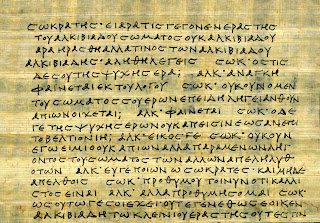 ΣΩΚΡΑΤΗΣ· ΕΙ ΑΡΑ ΤΙΣ ΓΕΓΟΝΕΝ ΕΡΑΣΤΗΣ
ΤΟΥ ΑΛΚΙΒΙΑΔΟΥ ΣΩΜΑΤΟΣ ΟΥΚ ΑΛΚΙΒΙΑΔΟΥ
ΑΡΑ ΗΡΑΣΘΗ ΑΛΛΑ ΤΙΝΟΣ ΤΩΝ ΑΛΚΙΒΙΑΔΟΥ
ΑΛΚΙΒΙΑΔΗΣ· ΑΛΗΘΗ ΛΕΓΕΙΣ ΣΩΚ· ΟΣΤΙΣ
ΔΕ ΣΟΥ ΤΗΣ ΨΥΧΗΣ ΕΡΑ; ΑΛΚ· ΑΝΑΓΚΗ
ΦΑΙΝΕΤΑΙ ΕΚ ΤΟΥ ΛΟΓΟΥ ΣΩΚ· ΟΥΚΟΥΝ Ο ΜΕΝ
ΤΟΥ ΣΩΜΑΤΟΣ ΣΟΥ ΕΡΩΝ ΕΠΕΙΔΗ ΛΗΓΕΙ ΑΝΘΟΥΝ
ΑΠΙΩΝ ΟΙΧΕΤΑΙ; ΑΛΚ· ΦΑΙΝΕΤΑΙ ΣΩΚ· Ο ΔΕ
ΓΕ ΤΗΣ ΨΥΧΗΣ ΕΡΩΝ ΟΥΚ ΑΠΕΙΣΙΝ ΕΩΣ ΑΝ ΙΗ ΕΠΙ
ΤΟ ΒΕΛΤΙΟΝ; ΑΛΚ· ΕΙΚΟΣ ΓΕ ΣΩΚ· ΟΥΚΟΥΝ
ΕΓΩ ΕΙΜΙ Ο ΟΥΚ ΑΠΙΩΝ ΑΛΛΑ ΠΑΡΑΜΕΝΩΝ ΛΗΓ
ΟΝΤΟΣ ΤΟΥ ΣΩΜΑΤΟΣ ΤΩΝ ΑΛΛΩΝ ΑΠΕΛΗΛΥΘ
ΟΤΩΝ ΑΛΚ· ΕΥ ΓΕ ΠΟΙΩΝ Ω ΣΩΚΡΑΤΕΣ· ΚΑΙ ΜΗΔΕ
ΑΠΕΛΘΟΙΣ ΣΩΚ· ΠΡΟΘΥΜΟΥ ΤΟΙΝΥΝ ΟΤΙ ΚΑΛΛΙ
ΣΤΟΣ ΕΙΝΑΙ ΑΛΚ· ΑΛΛΑ ΠΡΟΘΥΜΗΣΟΜΑΙ ΣΩΚ·
ΩΣ ΟΥΤΩ ΓΕ ΣΟΙ ΕΧΕΙ ΟΥΤ ΕΓΕΝΕΘ ΩΣ ΕΟΙΚΕΝ
ΑΛΚΙΒΙΑΔΗ ΤΩ ΚΛΕΙΝΙΟΥ ΕΡΑΣΤΗΣ ΟΥΤ ΕΣΤΙΝ